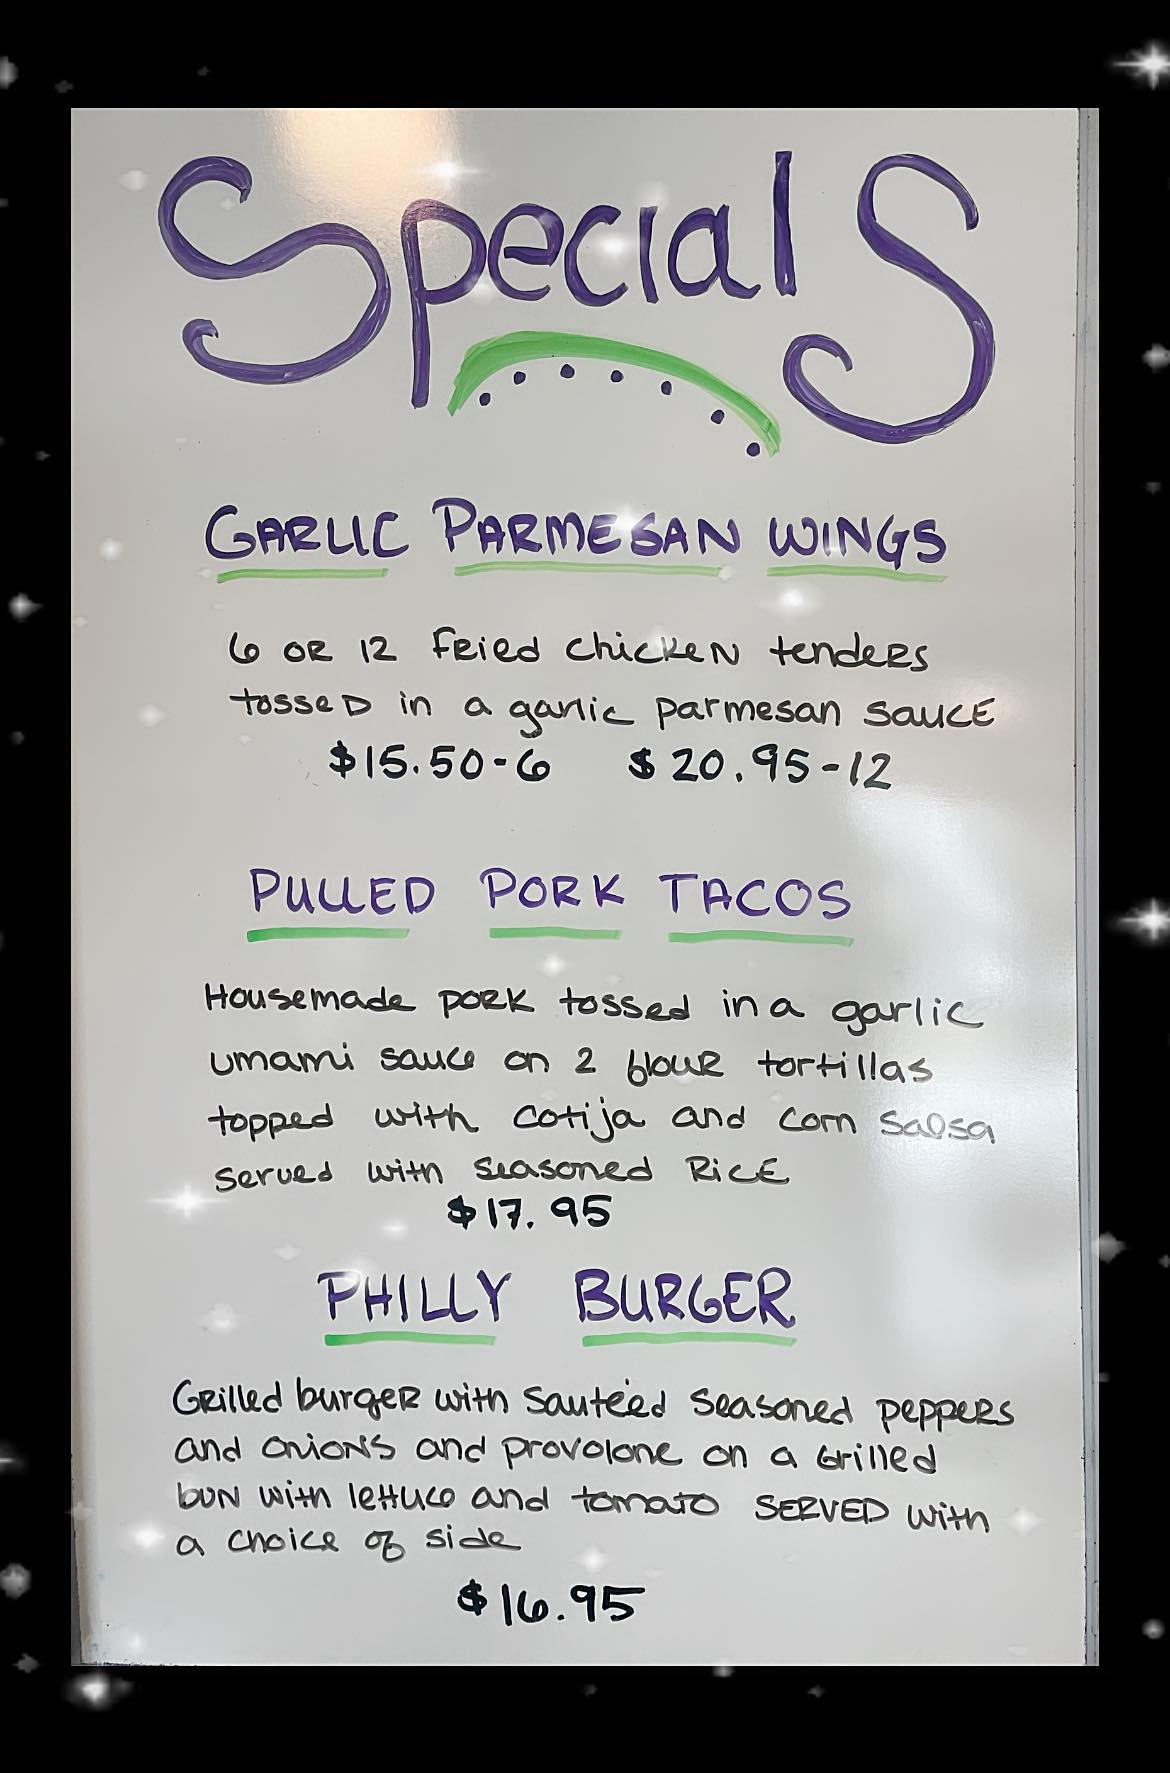 Specials
GARLIC PARMESAN WINGS
6 OR 12 fried chicken tenders
tossed in a garlic parmesan sauce
$15.50-6 $20.95-12
PULLED PORK TACOS
Housemade pork tossed in a garlic
umami sauce on 2 flour tortillas
topped with cotija and corn salsa
served with seasoned Rice
$17.95
PHILLY BURGER
Grilled burger with sautéed seasoned peppers
and onions and provolone on a Grilled
bun with lettuce and tomato SERVED with
a choice of side
$16.95